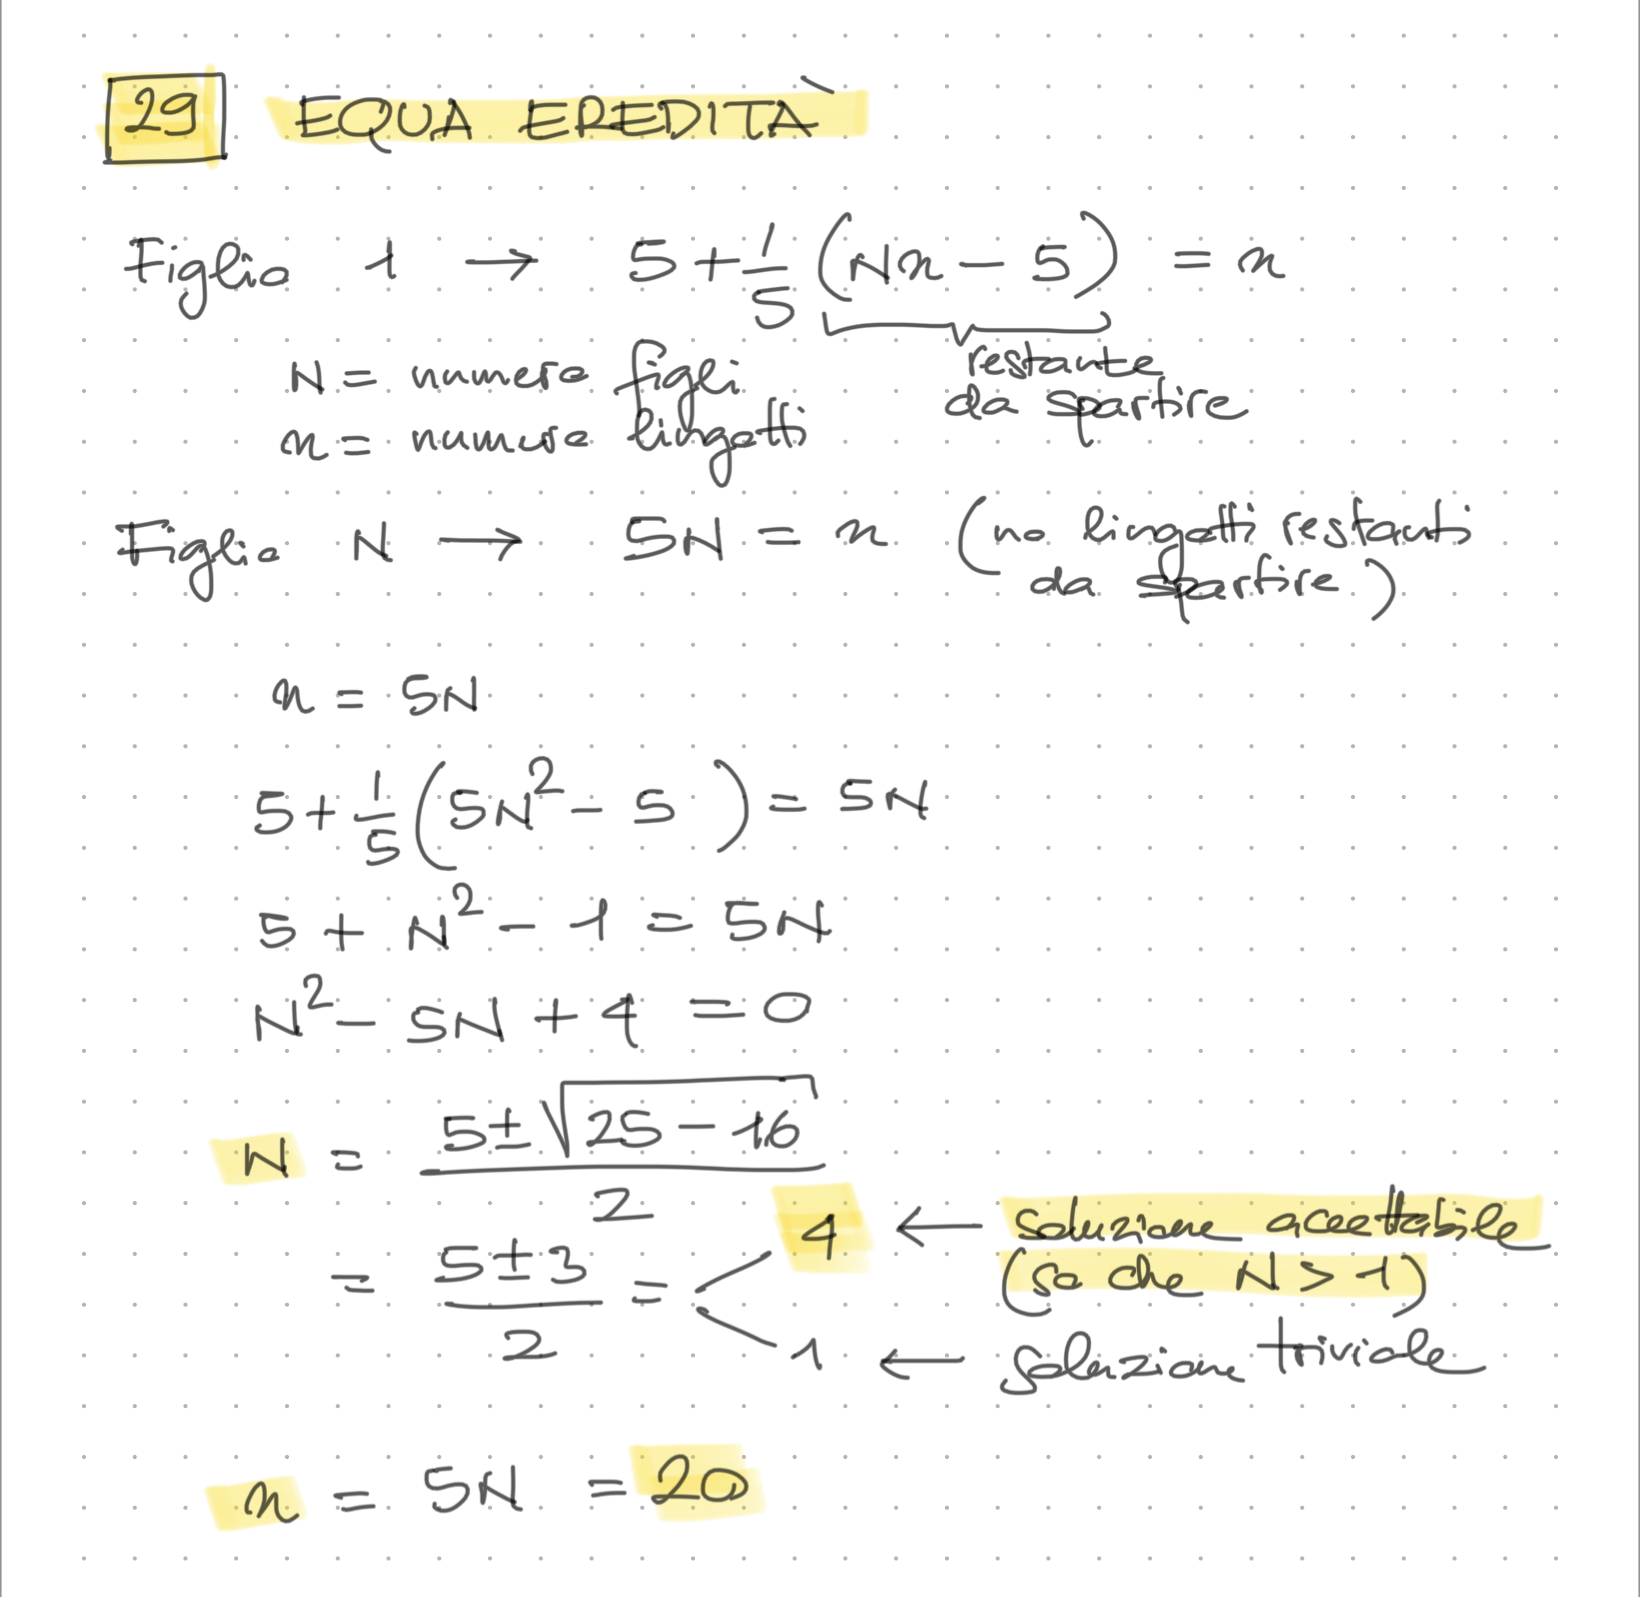 29 EQUA EREDITÀ
Figlio 1 → 5 + 1/5 (Nn - 5) = n
restante
da spartire
N = numero figli
n = numero lingotti
Figlio N → 5N = n (no lingotti restanti
da spartire)
n = 5N
5 + 1/5 (5N² - 5) = 5N
5 + N² - 1 = 5N
N² - 5N + 4 = 0
N = (5 ± √(25 - 16)) / 2
= (5 ± 3) / 2 = < 4 ← soluzione accettabile
(so che N > 1)
1 ← soluzione triviale
n = 5N = 20